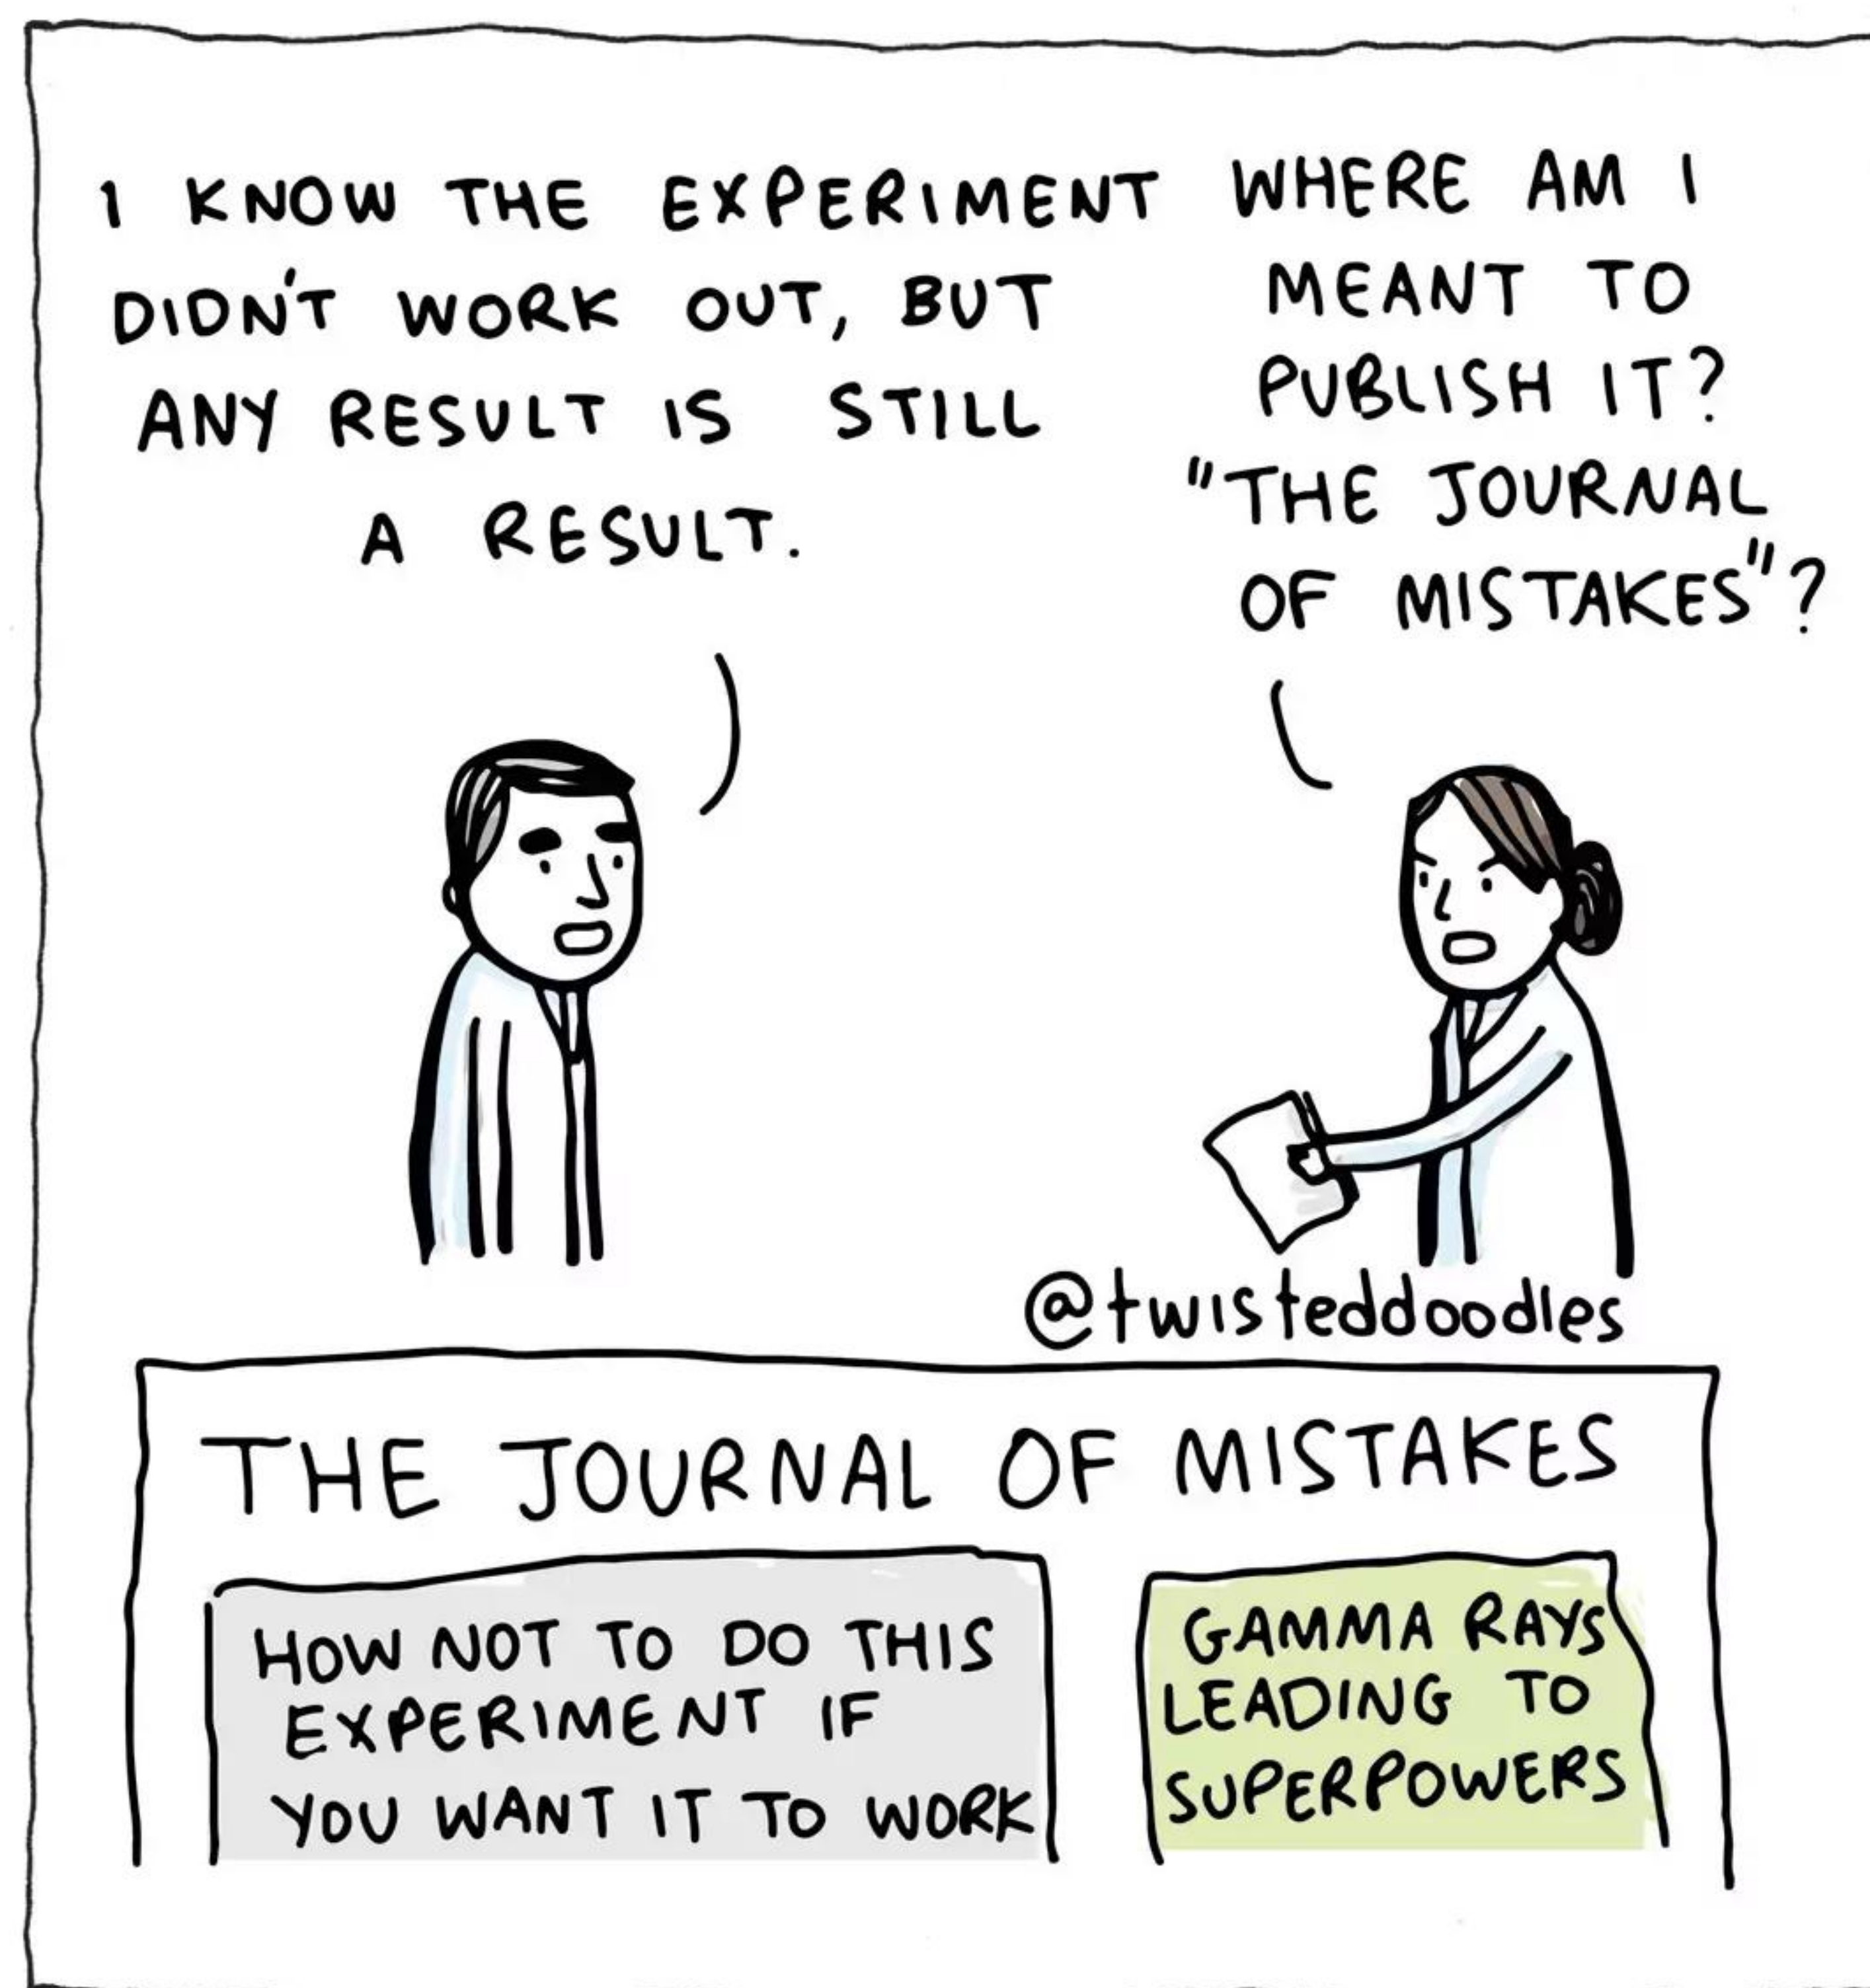 I KNOW THE EXPERIMENT
DIDN'T WORK OUT, BUT
ANY RESULT IS STILL
A RESULT.
WHERE AM I
MEANT TO
PUBLISH IT?
"THE JOURNAL
OF MISTAKES"?
@twisteddoodles
THE JOURNAL OF MISTAKES
HOW NOT TO DO THIS
EXPERIMENT IF
YOU WANT IT TO WORK
GAMMA RAYS
LEADING TO
SUPERPOWERS